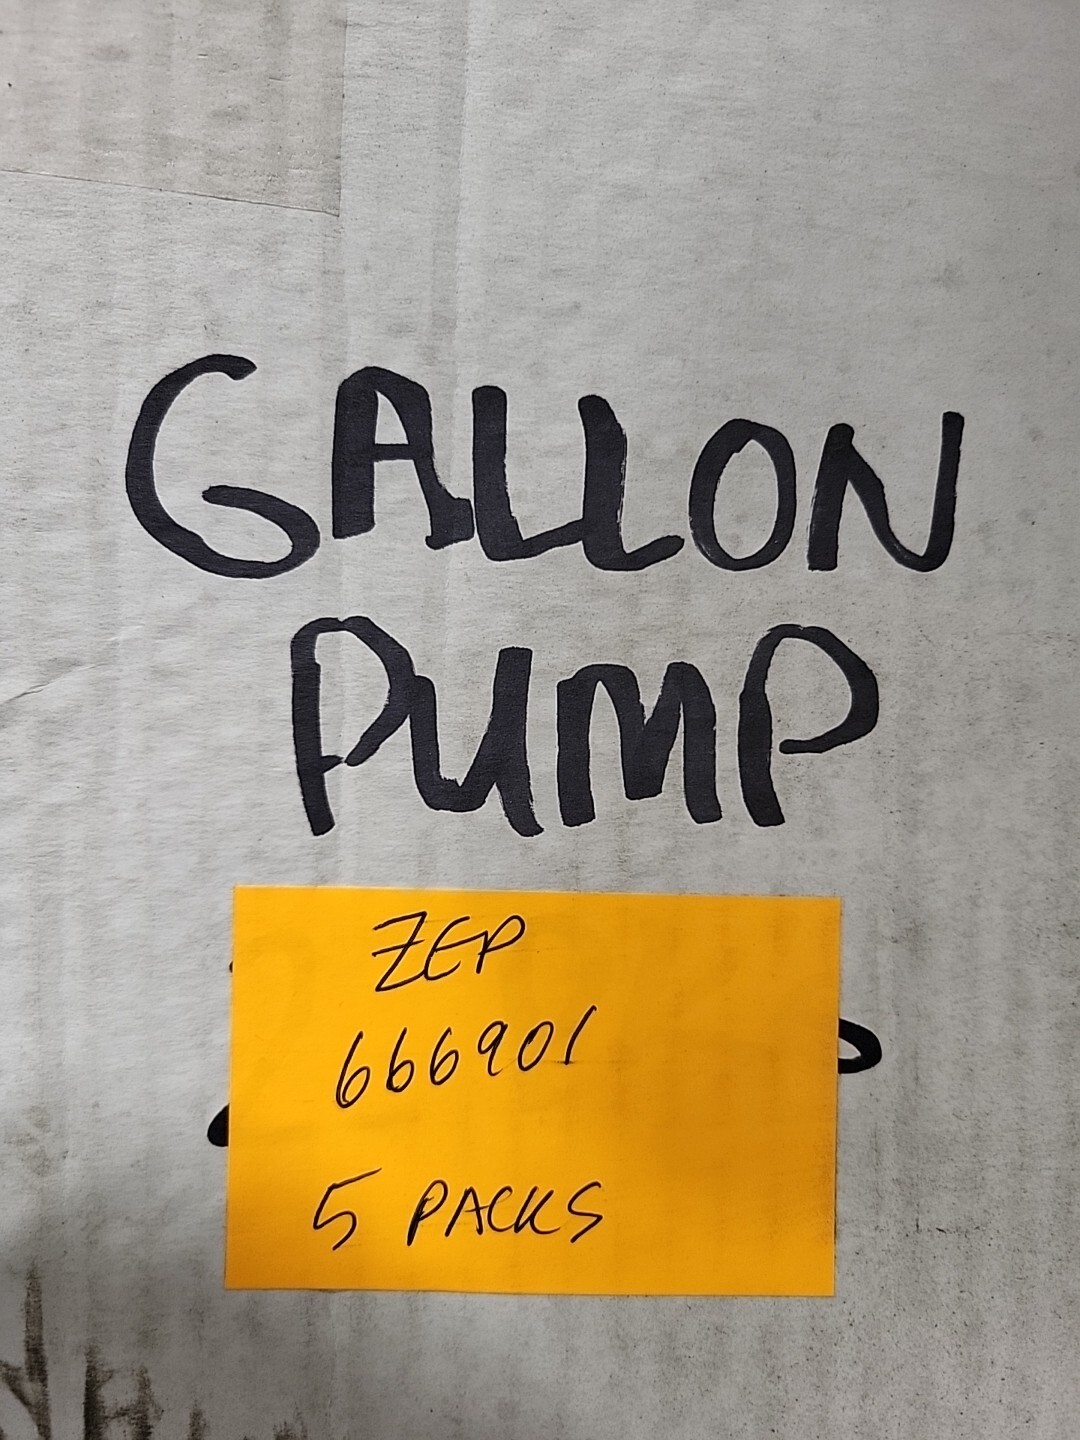 GALLON
PUMP
ZEP
666901
5 PACKS